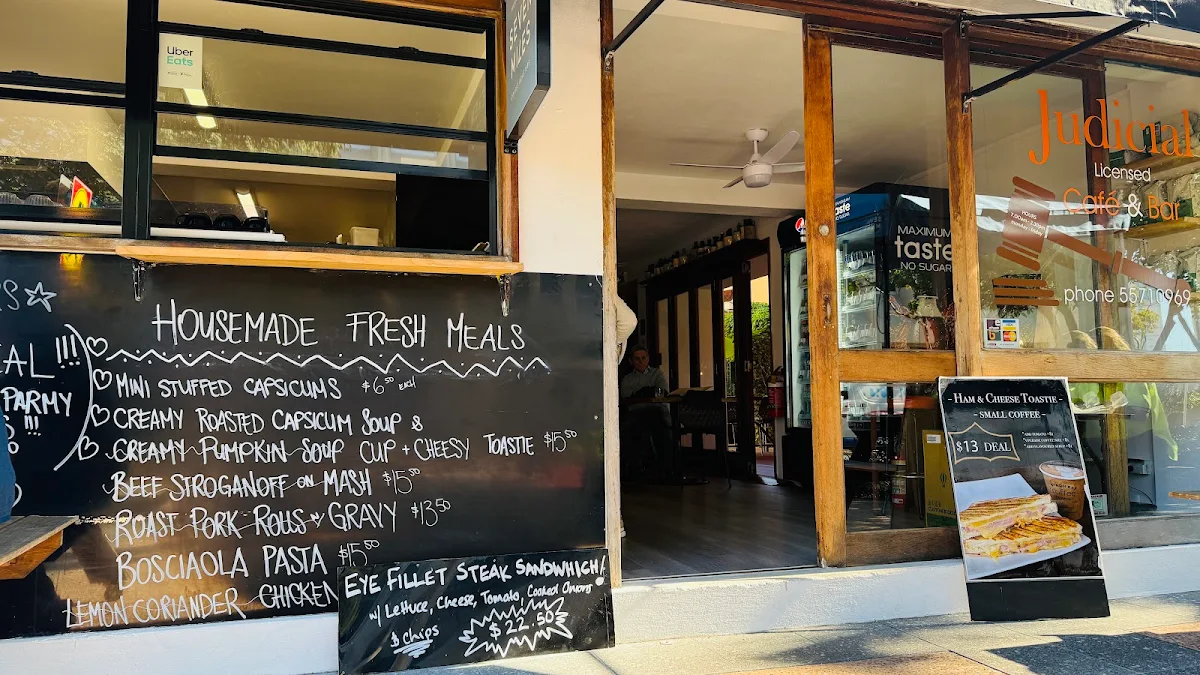 Uber
Eats
SEVEN
MILES
RS☆
IAL !!!
PARMY
!!!
HOUSEMADE FRESH MEALS
MINI STUFFED CAPSICUMS $6.50 EACH
CREAMY ROASTED CAPSICUM SOUP &
CREAMY PUMPKIN SOUP CUP + CHEESY TOASTIE $15.50
BEEF STROGANOFF ON MASH $15.50
ROAST PORK ROLLS & GRAVY $13.50
BOSCIAOLA PASTA $15.50
LEMON CORIANDER CHICKEN
EYE FILLET STEAK SANDWHICH!
w/ Lettuce, Cheese, Tomato, Cooked Onions
& chips
$22.50
taste
MAXIMUM
taste
NO SUGAR
Judicial
Licensed
Café & Bar
HOURS
phone 55710969
- HAM & CHEESE TOASTIE -
- SMALL COFFEE -
$13 DEAL